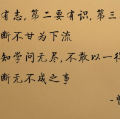 有志，第二要有识，第三
断不甘为下流
知学问无尽，不敢以一得
断无不成之事